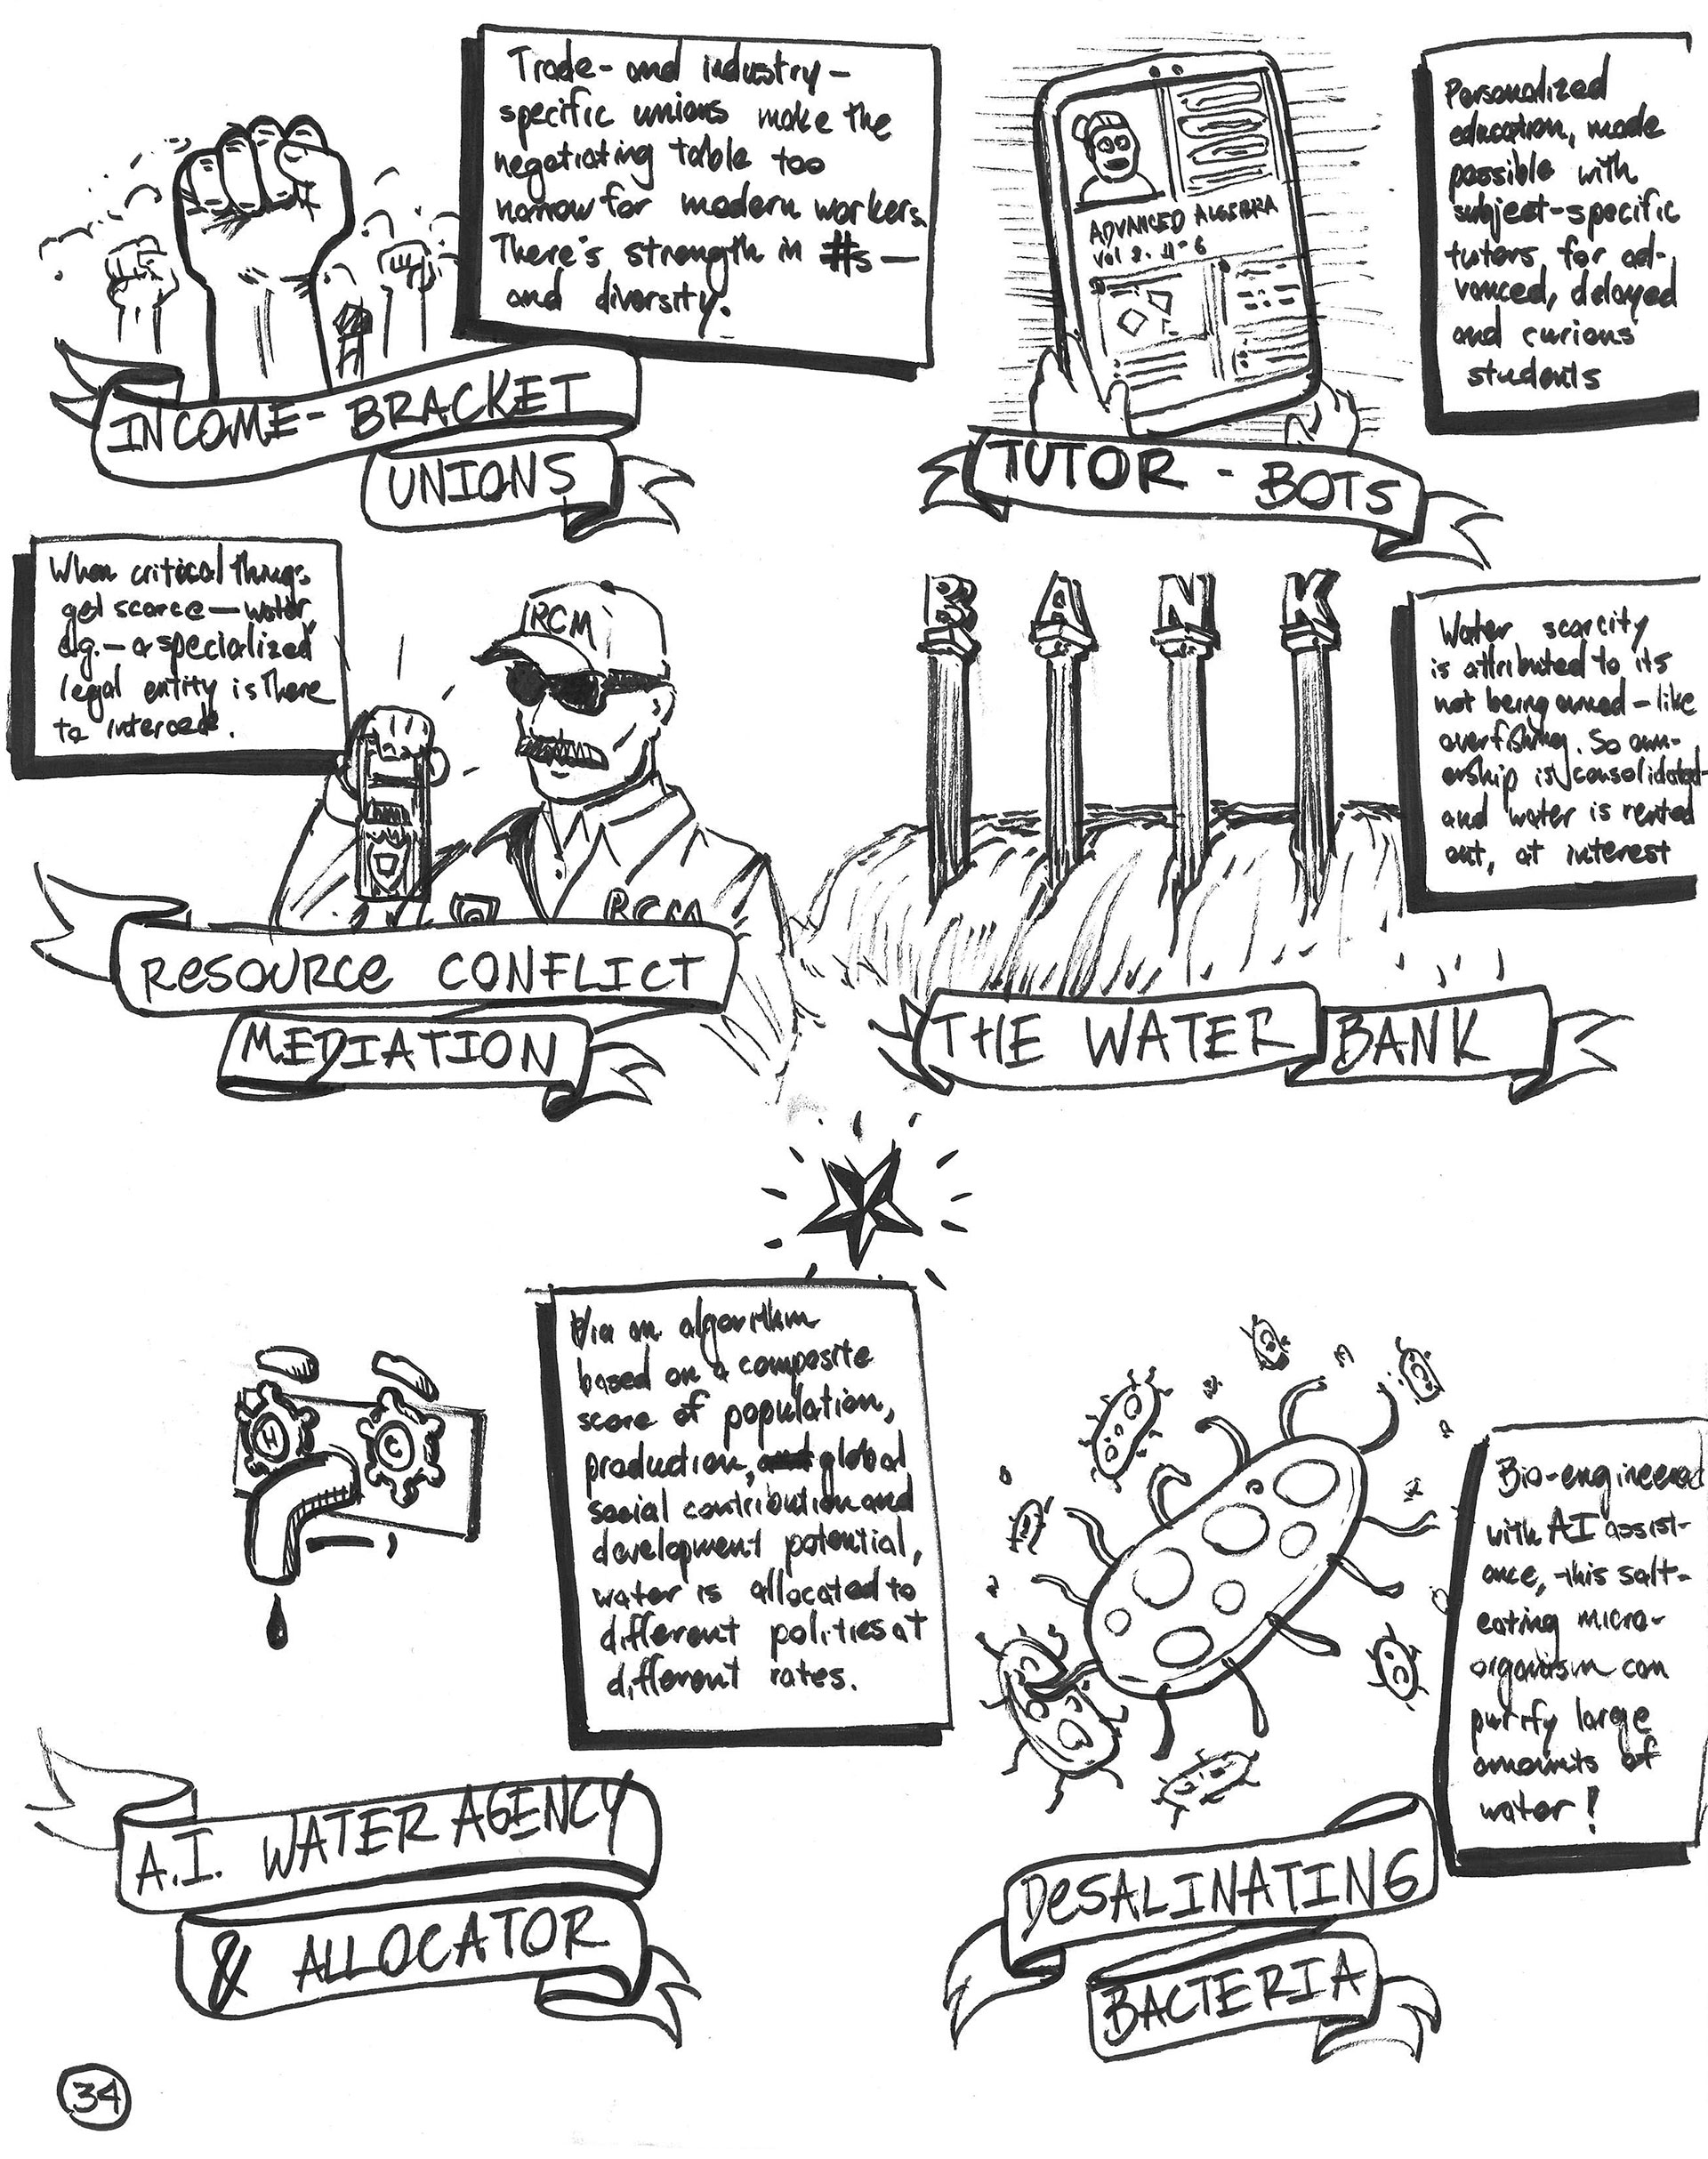 Trade- and industry-
specific unions make the
negotiating table too
narrow for modern workers.
There's strength in #s—
and diversity.
INCOME-BRACKET
UNIONS
ADVANCED ALGEBRA
Personalized
education, made
possible with
subject-specific
tutors, for ad-
vanced, delayed
and curious
students
TUTOR-BOTS
When critical things
get scarce—water,
e.g.—a specialized
legal entity is there
to intercede.
RCM
RCM
RESOURCE CONFLICT
MEDIATION
BANK
Water scarcity
is attributed to its
not being owned—like
overfishing. So own-
ership is consolidated
and water is rented
out, at interest
THE WATER BANK
H
C
Via an algorithm
based on a composite
score of population,
production, global
social contribution and
development potential,
water is allocated to
different polities at
different rates.
A.I. WATER AGENCY
& ALLOCATOR
Bio-engineered
with AI assist-
ance, this salt-
eating micro-
organism can
purify large
amounts of
water!
DESALINATING
BACTERIA
34